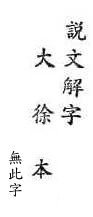 說文解字
大徐本
無此字